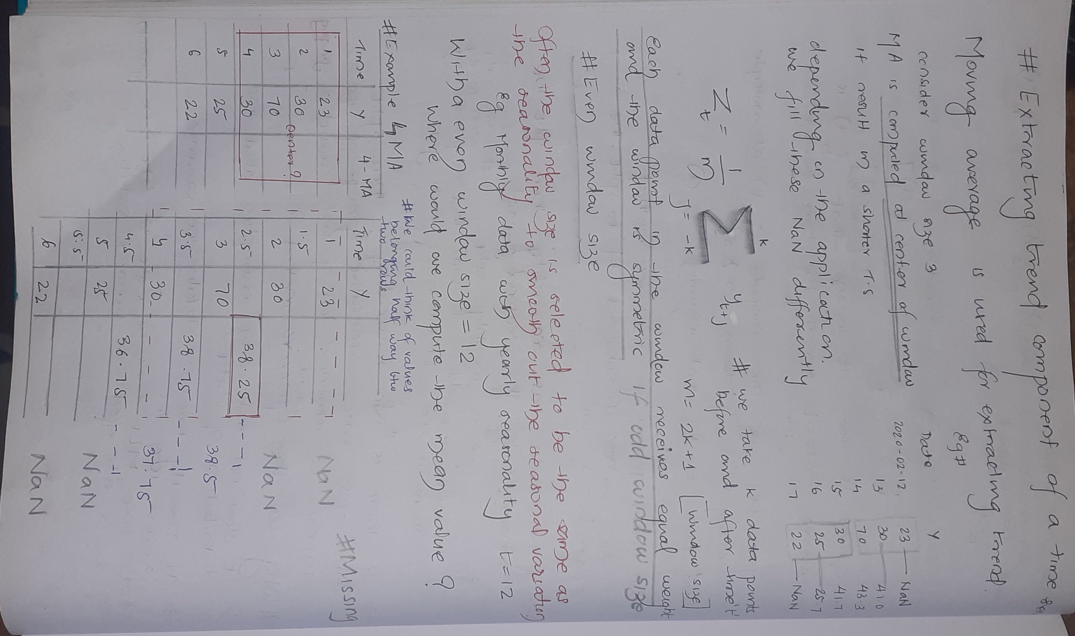 # Extracting trend component of a time
Moving average is used for extracting trend.
consider window size 3
MA is computed at center of window
it result in a shorter T.S
depending on the application
we fill these NaN differently
eg#
Date Y
2020-02-12 23 NaN
13 30 41.0
14 70 43.3
15 30 41.7
16 25 25.7
17 22 NaN
Z_t = 1/m Σ_{j=-k}^{k} y_{t+j}
# we take k data points
before and after time 't'
m = 2k+1 [window size]
Each data point in the window receives equal weight
and the window is symmetric if odd window size
# Even window size
Often, the window size is selected to be the same as
the seasonality to smooth out the seasonal variation
eg Monthly data with yearly seasonality t=12
With a even window size = 12
where would we compute the mean value ?
# Example 4 MA
# We could think of values
belonging half way btw
two
Time Y 4-MA
1 23
2 30
center?
3 70
4 30
5 25
6 22
Time Y
1 23 NaN
1.5
2 30 NaN
2.5 38.25
3 70 38.5
3.5 38.75
4 30 37.75
4.5 36.75
5 25 NaN
5.5
6 22 NaN
# Missing